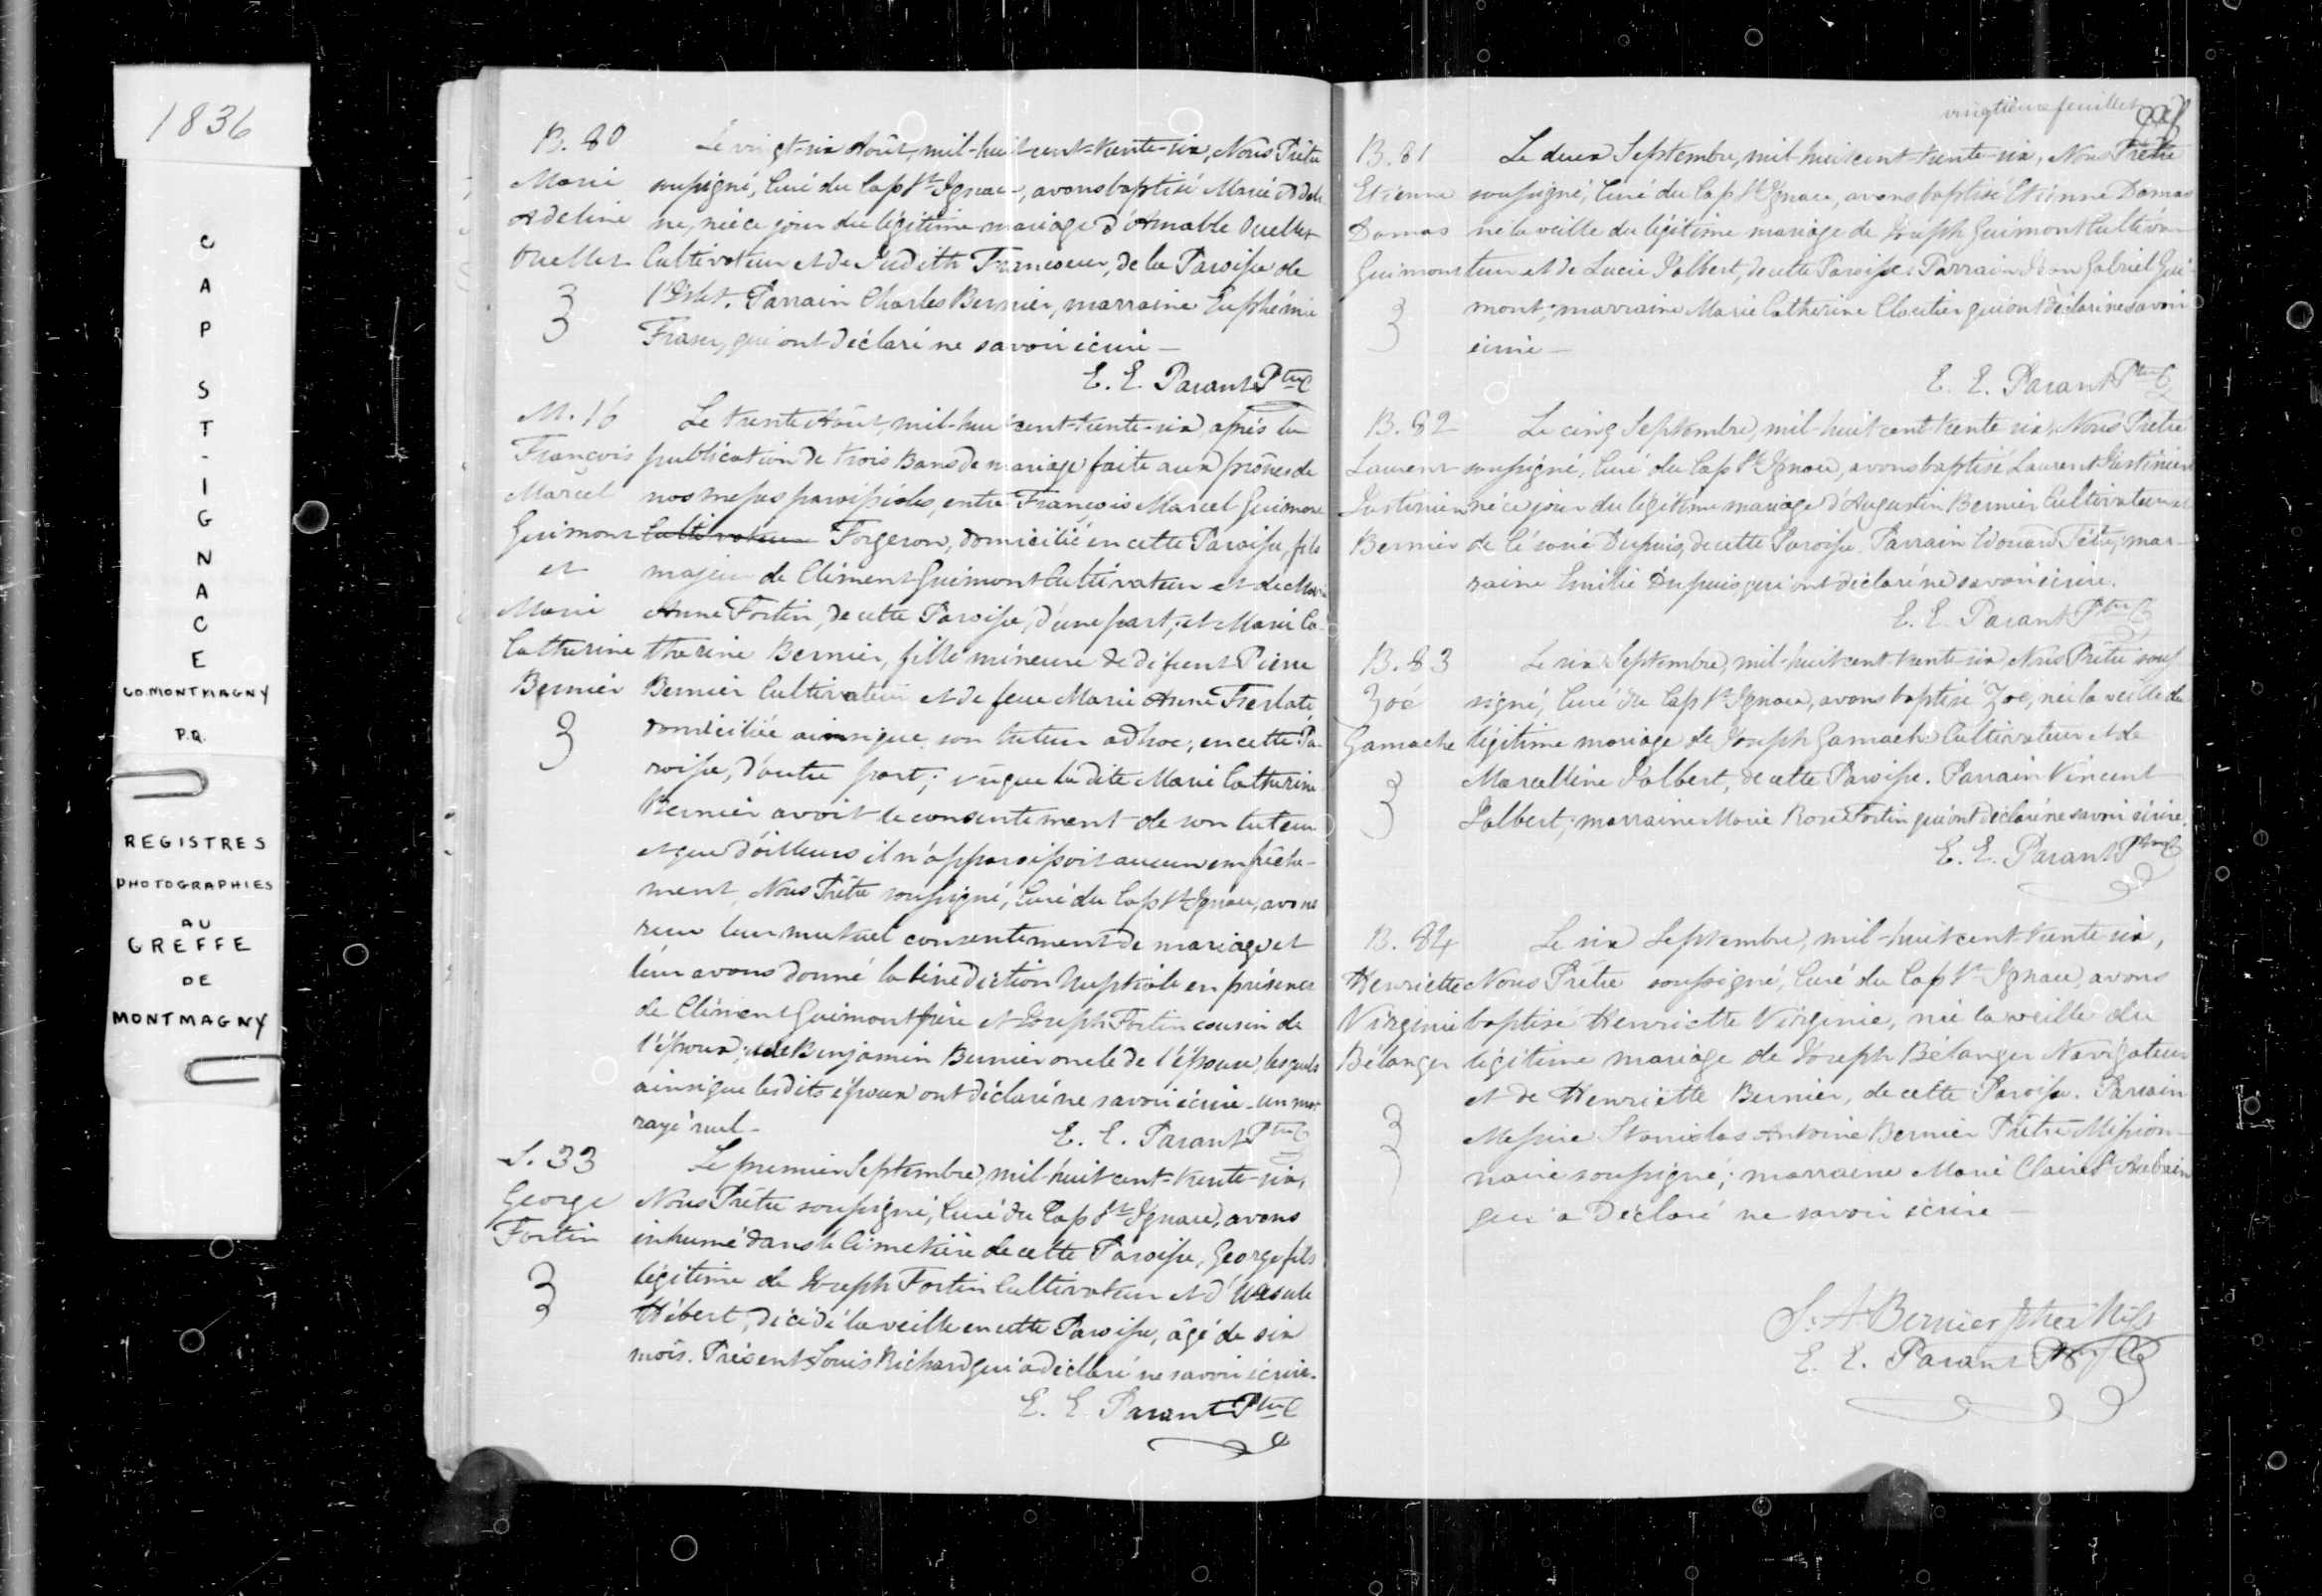 1836
CAP ST-IGNACE
CO. MONTMAGNY
P.Q.
REGISTRES
PHOTOGRAPHIES
AU
GREFFE
DE
MONTMAGNY
B. 80
Marie
Adeline
Ouellet
3
Le vingt-six Août, mil-huit-cent-trente-six, Nous Prêtre
soussigné, Curé du Cap St Ignace, avons baptisé Marie Adeli
ne, née ce jour du légitime mariage d'Amable Ouellet
Cultivateur et de Judith Francoeur, de la Paroisse de
l'Islet. Parrain Charles Bernier, marraine Euphémie
Fraser, qui ont déclaré ne savoir écrire —
E. E. Parant Ptre C
M. 16
François
Marcel
Guimont
et
Marie
Catherine
Bernier
3
Le trente Août, mil-huit cent-trente-six, après la
publication de trois Bans de mariage faite aux prônes de
nos messes paroissiales, entre François Marcel Guimont
Cultivateur Forgeron, domicilié en cette Paroisse, fils
majeur de Clément Guimont Cultivateur et de Marie
Anne Fortin, de cette Paroisse, d'une part; et Marie Ca-
therine Bernier, fille mineure de défunt Pierre
Bernier Cultivateur et de feue Marie Anne
domiciliée ainsi que son tuteur adhoc, en cette Pa-
roisse, d'autre part; vû que la dite Marie Catherine
Bernier avoit le consentement de son tuteur
et que d'ailleurs il n'apparoissoit aucun empêche-
ment, Nous Prêtre soussigné, Curé du Cap St Ignace, avons
reçu leur mutuel consentement de mariage et
leur avons donné la bénédiction Nuptiale en présence
de Clément Guimont frère et Joseph Fortin cousin de
l'époux; de Benjamin Bernier oncle de l'épouse, lesquels
ainsi que les dits époux ont déclaré ne savoir écrire - un mot
rayé nul -
E. E. Parant Ptre C
S. 33
George
Fortin
3
Le premier Septembre, mil-huit cent-trente-six,
Nous Prêtre soussigné, Curé du Cap St Ignace, avons
inhumé dans le Cimetière de cette Paroisse, George fils
légitime de Joseph Fortin Cultivateur et d'Ursule
Hébert, décédé la veille en cette Paroisse, âgé de six
mois. Présent Louis Richard qui a déclaré ne savoir écrire.
E. E. Parant Ptre C
vingtième feuillet
B. 81
Etienne
Damas
Guimont
3
Le deux Septembre, mil-huit cent-trente-six, Nous Prêtre
soussigné, Curé du Cap St Ignace, avons baptisé Etienne Damas
né la veille du légitime mariage de Joseph Guimont Cultiva-
teur et de Lucie Jalbert, de cette Paroisse. Parrain Jean Gabriel Gui-
mont; marraine Marie Catherine Cloutier qui ont déclaré ne savoir
écrire —
E. E. Parant Ptre C
B. 82
Laurent
Justinien
Bernier
Le cinq Septembre, mil-huit cent trente six, Nous Prêtre
soussigné, Curé du Cap St Ignace, avons baptisé Laurent Justinien
né ce jour du légitime mariage d'Augustin Bernier Cultivateur et
de Césarie Dupuis, de cette Paroisse. Parrain Edouard Têtu; mar-
raine Emilie Dupuis qui ont déclaré ne savoir écrire.
E. E. Parant Ptre C
B. 83
Zoé
Gamache
3
Le six Septembre, mil-huit cent-trente-six Nous Prêtre sous
signé, Curé du Cap St Ignace, avons baptisé Zoé, née la veille du
légitime mariage de Joseph Gamache Cultivateur et de
Marcelline Jalbert, de cette Paroisse. Parrain Vincent
Jalbert; marraine Marie Rose Fortin qui ont déclaré ne savoir écrire.
E. E. Parant Ptre C
B. 84
Henriette
Virginie
Bélanger
3
Le six Septembre, mil-huit cent trente six,
Nous Prêtre soussigné, Curé du Cap St Ignace, avons
baptisé Henriette Virginie, née la veille du
légitime mariage de Joseph Bélanger Navigateur
et de Henriette Bernier, de cette Paroisse. Parrain
Messire Stanislas Antoine Bernier Prêtre Mission-
naire soussigné; marraine Marie Claire St Aubain
qui a déclaré ne savoir écrire —
S. A Bernier Ptre Miss
E. E. Parant Ptre C